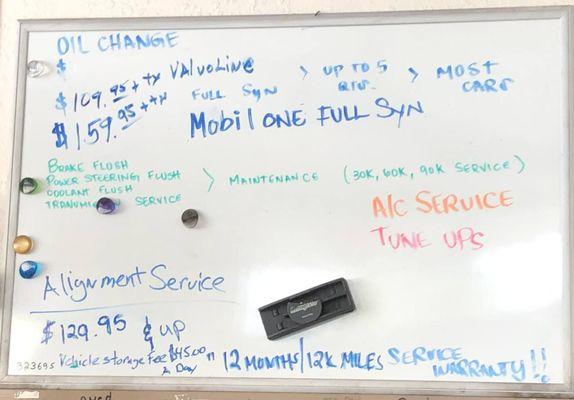 OIL CHANGE
$
$109.95 + tx VALVOLINE FULL SYN > UP TO 5 QTS. > MOST CARS
$159.95 + tx Mobil ONE FULL SYN
BRAKE FLUSH
POWER STEERING FLUSH
COOLANT FLUSH
SERVICE
> MAINTENANCE (30K, 60K, 90K SERVICE)
A/C SERVICE
TUNE UPS
Alignment Service
$129.95 & up
Vehicle storage Fee $45.00 A Day
12 MONTHS/12K MILES SERVICE WARRANTY!!
323695